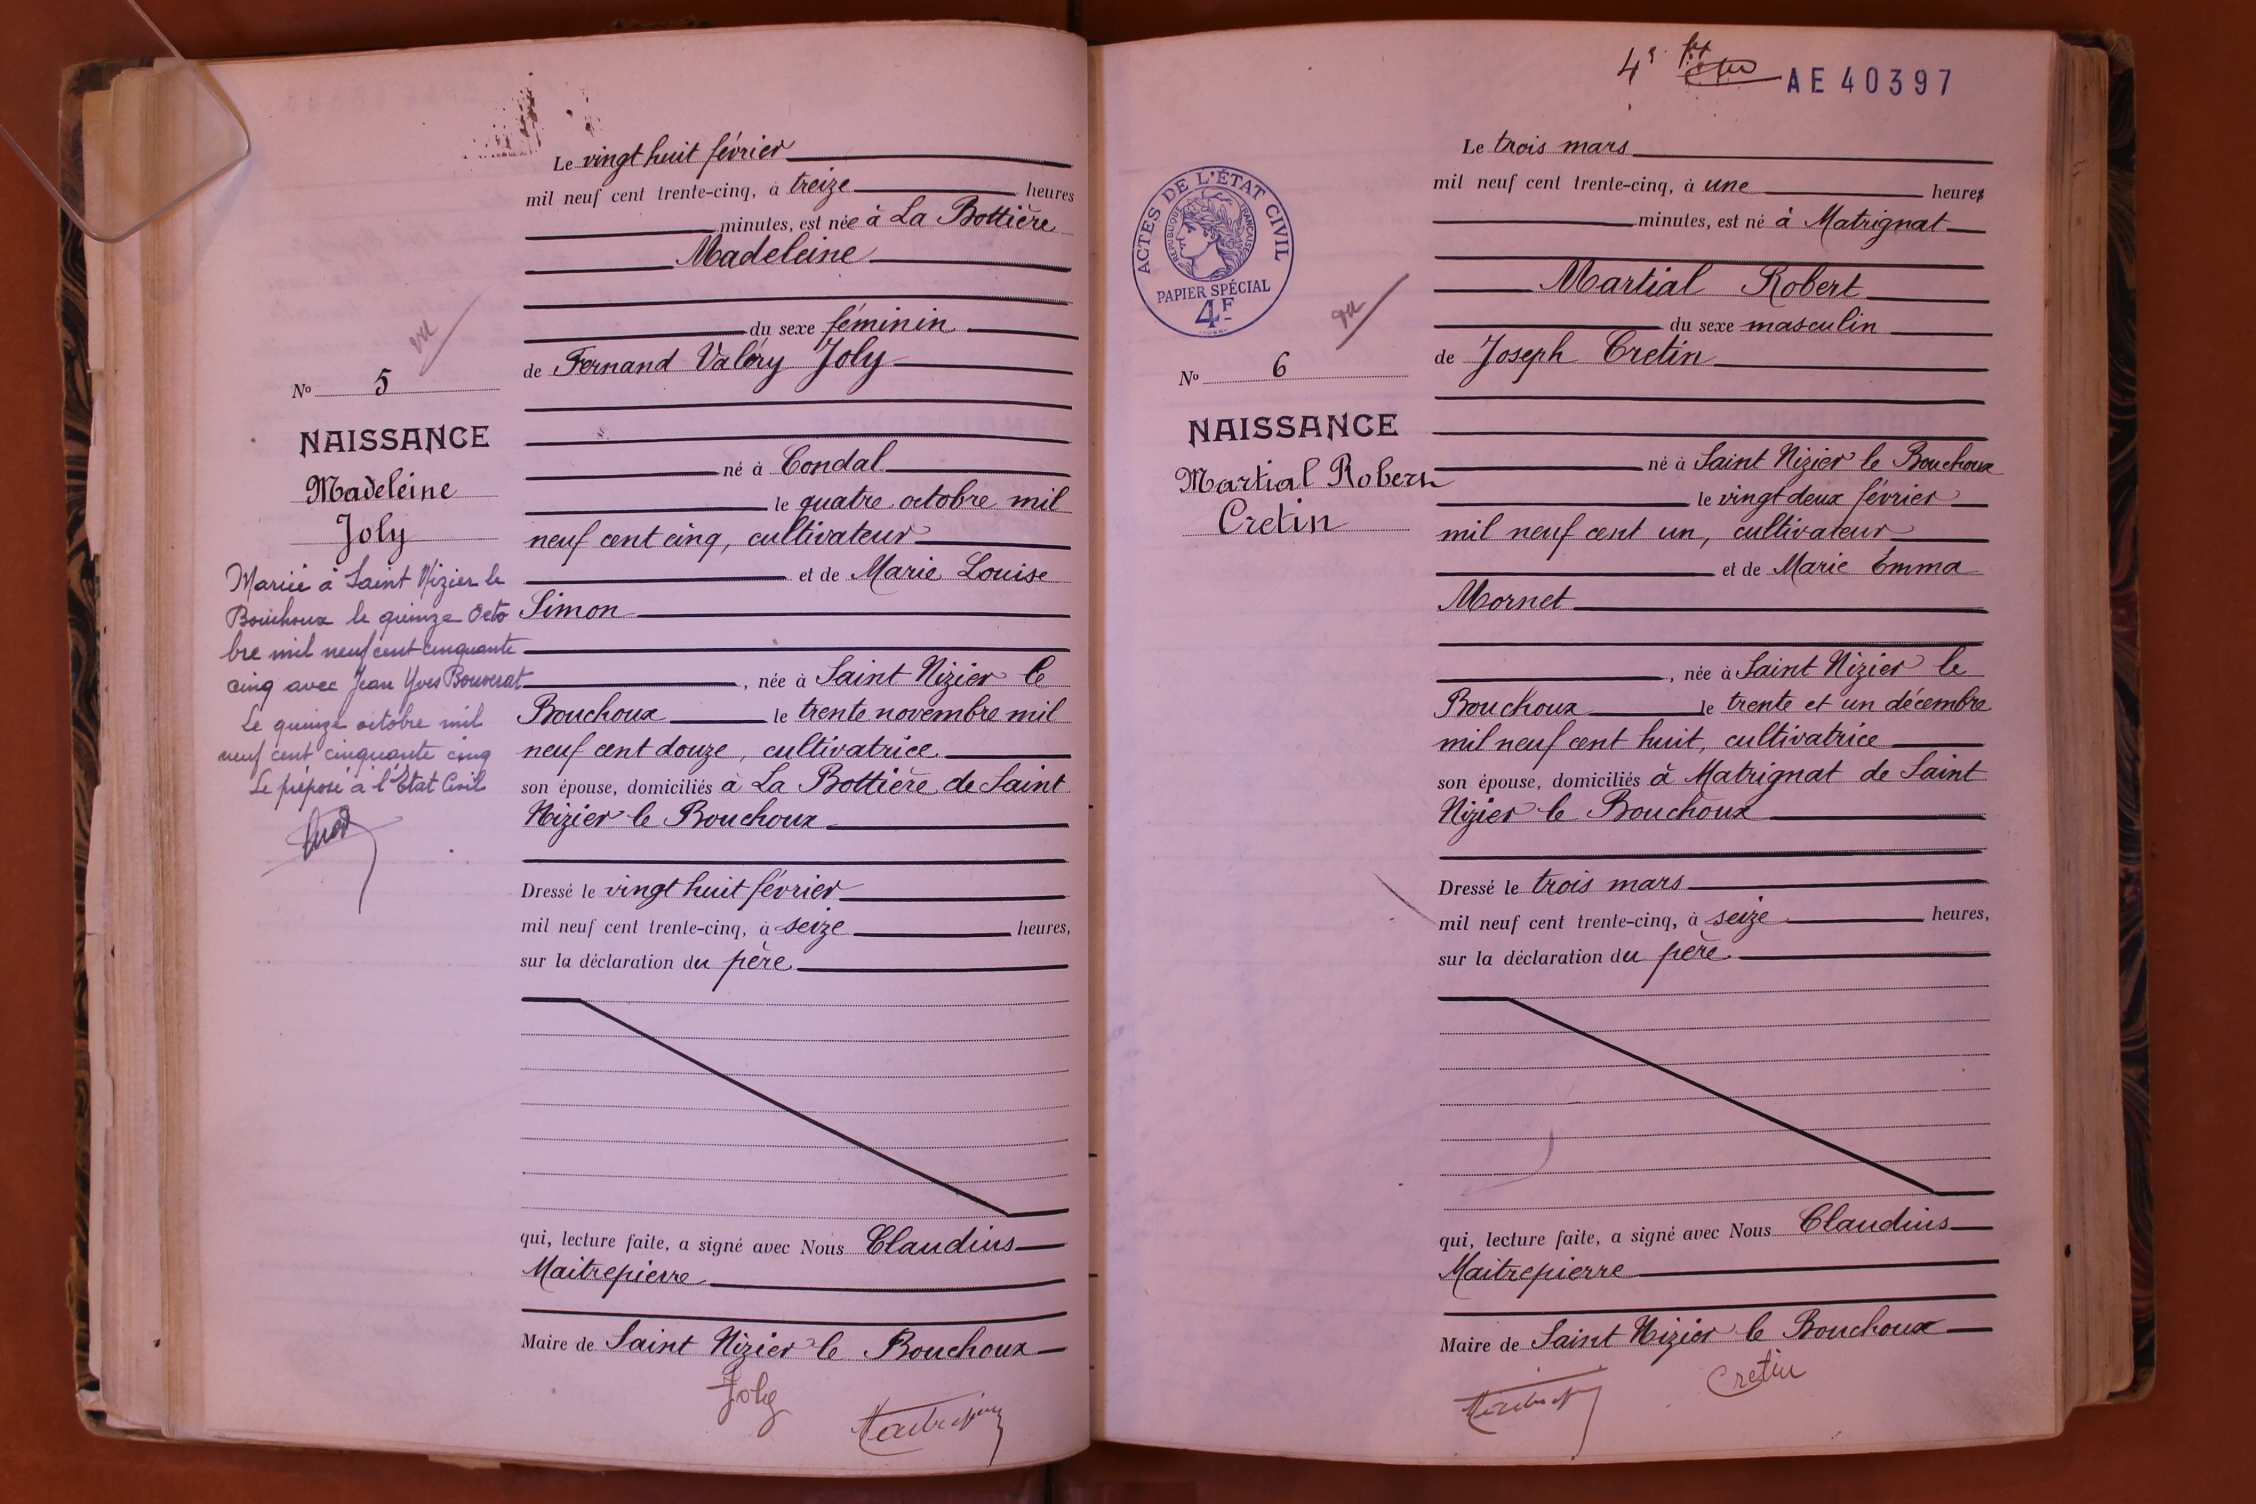 Le vingt huit février
mil neuf cent trente-cinq, à treize heures
minutes, est née à La Bottière
Madeleine
du sexe féminin
de Fernand Valéry Joly
né à Condal
le quatre octobre mil
neuf cent cinq, cultivateur
et de Marie Louise
Simon
, née à Saint Nizier le
Bouchoux le trente novembre mil
neuf cent douze, cultivatrice
son épouse, domiciliés à La Bottière de Saint
Nizier le Bouchoux
Dressé le vingt huit février
mil neuf cent trente-cinq, à seize heures,
sur la déclaration du père
qui, lecture faite, a signé avec Nous Claudius
Maitrepierre
Maire de Saint Nizier le Bouchoux
Joly
vu
No 5
NAISSANCE
Madeleine
Joly
Mariée à Saint Nizier le
Bouchoux le quinze Octo
bre mil neuf cent cinquante
cinq avec Jean Yves Bouverat
Le quinze octobre mil
neuf cent cinquante cinq
Le préposé à l'État Civil
4e
AE 40397
ACTES DE L'ÉTAT CIVIL
RÉPUBLIQUE FRANÇAISE
PAPIER SPÉCIAL
4F
vu
No 6
NAISSANCE
Martial Robert
Cretin
Le trois mars
mil neuf cent trente-cinq, à une heures
minutes, est né à Matrignat
Martial Robert
du sexe masculin
de Joseph Cretin
né à Saint Nizier le Bouchoux
le vingt deux février
mil neuf cent un, cultivateur
et de Marie Emma
Mornet
, née à Saint Nizier le
Bouchoux le trente et un décembre
mil neuf cent huit, cultivatrice
son épouse, domiciliés à Matrignat de Saint
Nizier le Bouchoux
Dressé le trois mars
mil neuf cent trente-cinq, à seize heures,
sur la déclaration du père
qui, lecture faite, a signé avec Nous Claudius
Maitrepierre
Maire de Saint Nizier le Bouchoux
Cretin